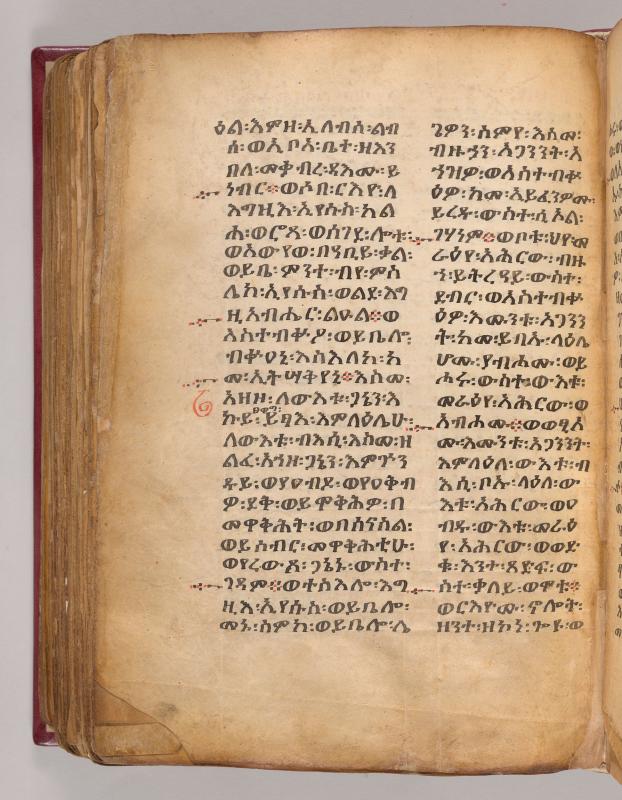 ዕል፡እምዘ፡ኢለብሰ፡ልብ
ሰ፡ወኢቦአ፡ቤተ፡ዘእን
በለ፡መቃብረ፡ዳእሙ፡ይ
ነብር፨ወሶበ፡ርእዮ፡ለ
እግዚእ፡ኢየሱስ፡አል
ሐ፡ወሮጸ፡ወሰገደ፡ሎቱ፡
ወአውየወ፡በዓቢይ፡ቃል፡
ወይቤ፡ምንተ፡ብየ፡ምስ
ሌከ፡ኢየሱስ፡ወልደ፡እግ
ዚአብሔር፡ልዑል፨ወ
አስተብቍዖ፡ወይቤሎ፡
ብቍዐኒ፡እስእለከ፡ከ
መ፡ኢትሣቅየኒ፨እስመ፡
አዘዞ፡ለውእቱ፡ጋኔን፡እ
ኩይ፡ይፃእ፡እምላዕሌሁ፡
ለውእቱ፡ብእሲ፡እስመ፡ዘ
ልፈ፡አኀዘ፡ጋኔን፡እምጕን
ዱይ፡ወያዐብዶ፡ወየዐቅብ
ዎ፡ደቂ፡ወይሞቅሕዎ፡በ
መዋቅሕት፡ወበሰናስል፡
ወይሰብር፡መዋቅሕቲሁ፡
ወየረውጾ፡ጋኔኑ፡ውስተ፡
ገዳም፨ወተስእሎ፡እግ
ዚእ፡ኢየሱስ፡ወይቤሎ፡
መኑ፡ስምከ፡ወይቤሎ፡ሌ
ጌዎን፡ስምየ፡እስመ፡
ብዙኃን፡አጋንንት፡አ
ኀዝዎ፡ወአስተብቍ
ዕዎ፡ከመ፡አይፈንዎሙ፡
ይረዱ፡ውስተ፡ሲኦል፡
ገሃነም፨ወቦቱ፡ህየመ
ራዕየ፡አሕርው፡ብዙ
ኅ፡ይትረዓይ፡ውስተ፡
ደብር፡ወአስተብቍ
ዕዎ፡እሙንቱ፡አጋንን
ት፡ከመ፡ይብኡ፡ላዕሌ
ሆሙ፡ያብሖሙ፡ወይ
ሖሩ፡ውስተ፡ውእቱ፡
መራዕየ፡አሕርው፡ወ
አብሖሙ፨ወወፂአ
ሙ፡እሙንቱ፡አጋንንት፡
እምላዕለ፡ውእቱ፡ብ
እሲ፡ቦኡ፡ላዕለ፡ው
እቱ፡አሕርው፡ወዐ
ብዱ፡ውእቱ፡መራዕ
የ፡አሕርው፡ወወድ
ቁ፡እንተ፡ጸድፍ፡ው
ስተ፡ቀላይ፡ወሞቱ፨
ወርእዮሙ፡ኖሎት፡
ዘንተ፡ዘኮነ፡ጐዩ፡ወ